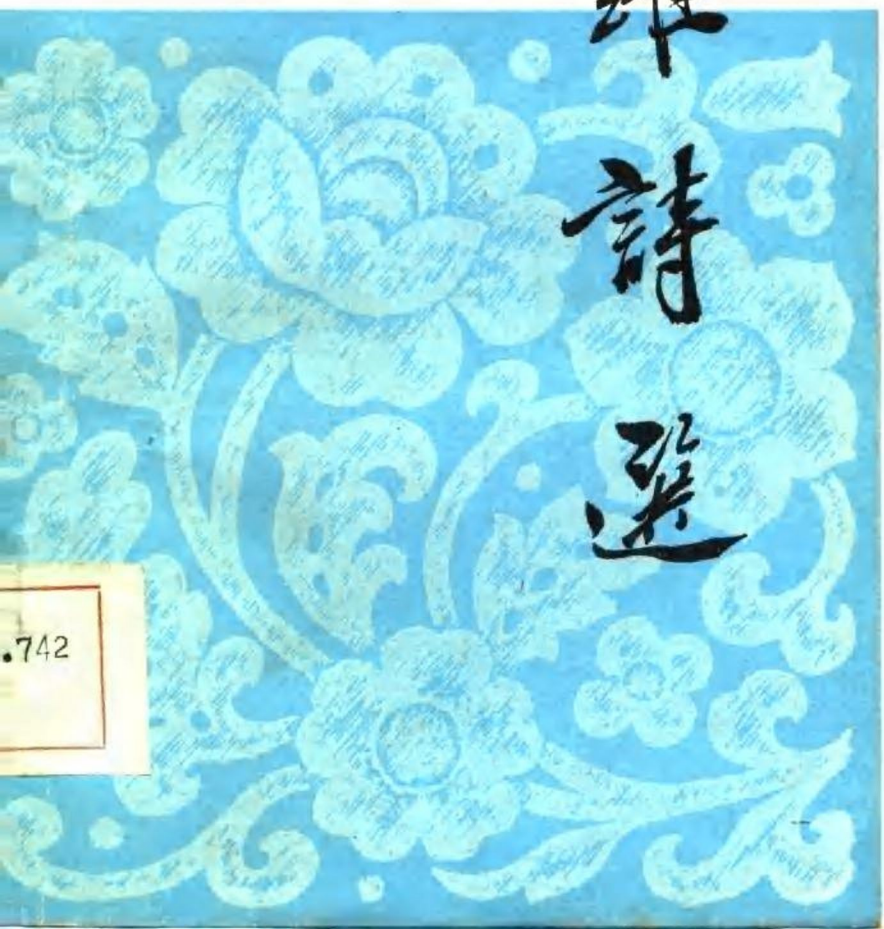 詩選
.742